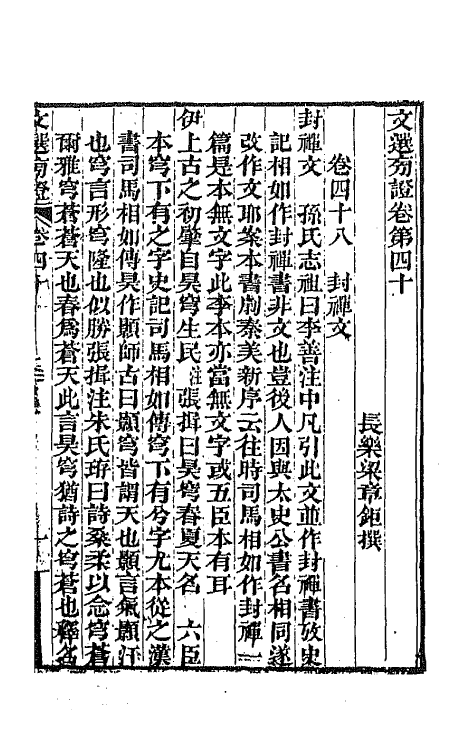 文選㫄證卷第四十
長樂梁章鉅撰
卷四十八　封禪文
封禪文　孫氏志祖曰李善注中凡引此文並作封禪書攷史
記相如作封禪書非文也豈後人因與太史公書名相同遂
改作文耶案本書劇秦美新序云往時司馬相如作封禪一
篇是本無文字此李本亦當無文字或五臣本有耳
伊上古之初肈自昊穹生民注張揖曰昊穹春夏天名　六臣
本穹下有之字史記司馬相如傳穹下有兮字尤本從之漢
書司馬相如傳昊作顥師古曰顥穹皆謂天也顥言氣顥汗
也穹言形穹隆也似勝張揖注朱氏珔曰詩桑柔以念穹蒼
爾雅穹蒼蒼天也春爲蒼天此言昊穹猶詩之穹蒼也釋名
文選㫄證 卷四十